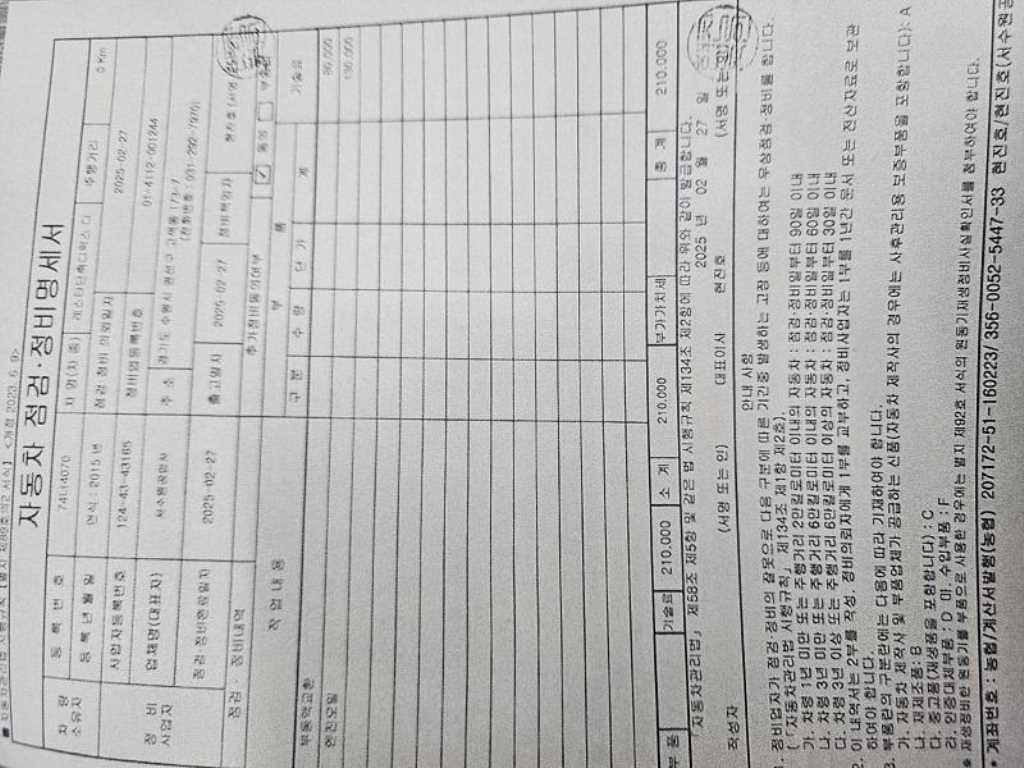 자동차 점검·정비명세서
등 록 번 호 차 명(차 종) 주행거리 0 Km
등 록 년 월 일 연식 : 2015 년 점검 정비 의뢰일자 2025-02-27
사업자등록번호 124-43-43165 정비업등록번호 01-4112-001244
업체명(대표자) 서수원공업사 주 소 경기도 수원시 권선구 고색동
점검 정비완료일자 2025-02-27 출고일자 2025-02-27 정비책임자
차 량 소유자
정 비 사업자
점검 · 정비내역 추가정비동의여부 ✓ 동의
작 업 내 용 부 품 기술료
구 분 수 량 단 가 계
부동액교환
엔진오일 130,000
부 품 기술료 210.000 소 계 210.000 부가가치세 총 계 210.000
「자동차관리법」 제58조 제5항 및 같은 법 시행규칙 제134조 제2항에 따라 위와 같이 발급합니다.
2025 년 02 월 27 일
작성자 (서명 또는 인) 대표이사 현진호 (서명 또는
안내 사항
정비업자가 점검·정비의 잘못으로 다음 구분에 따른 기간중 발생하는 고장 등에 대하여는 무상점검·정비를 합니다.
(「자동차관리법 시행규칙」 제134조 제1항 제2호).
가. 차령 1년 미만 또는 주행거리 2만킬로미터 이내의 자동차 : 점검·정비일부터 90일 이내
나. 차령 3년 미만 또는 주행거리 6만킬로미터 이내의 자동차 : 점검·정비일부터 60일 이내
다. 차령 3년 이상 또는 주행거리 6만킬로미터 이상의 자동차 : 점검·정비일부터 30일 이내
2. 이 내역서는 2부를 작성, 정비의뢰자에게 1부를 교부하고, 정비사업자는 1부를 1년간 문서 또는 전산자료로 보관
하여야 합니다.
3. 부품란의 구분란에는 다음에 따라 기재하여야 합니다.
가. 자동차 제작사 및 부품업체가 공급하는 신품(자동차 제작사의 경우에는 사후관리용 보증부품을 포함합니다): A
나. 재제조품: B
다. 중고품(재생품을 포함합니다) : C
라. 인증대체부품 : D 마. 수입부품 : F
* 재생정비한 원동기를 부품으로 사용한 경우에는 별지 제92호 서식의 원동기재생정비사실확인서를 첨부하여야 합니다.
* 계좌번호 : 농협/계산서발행(농협) 207172-51-160223/ 356-0052-5447-33 현진호/현진호(서수원공